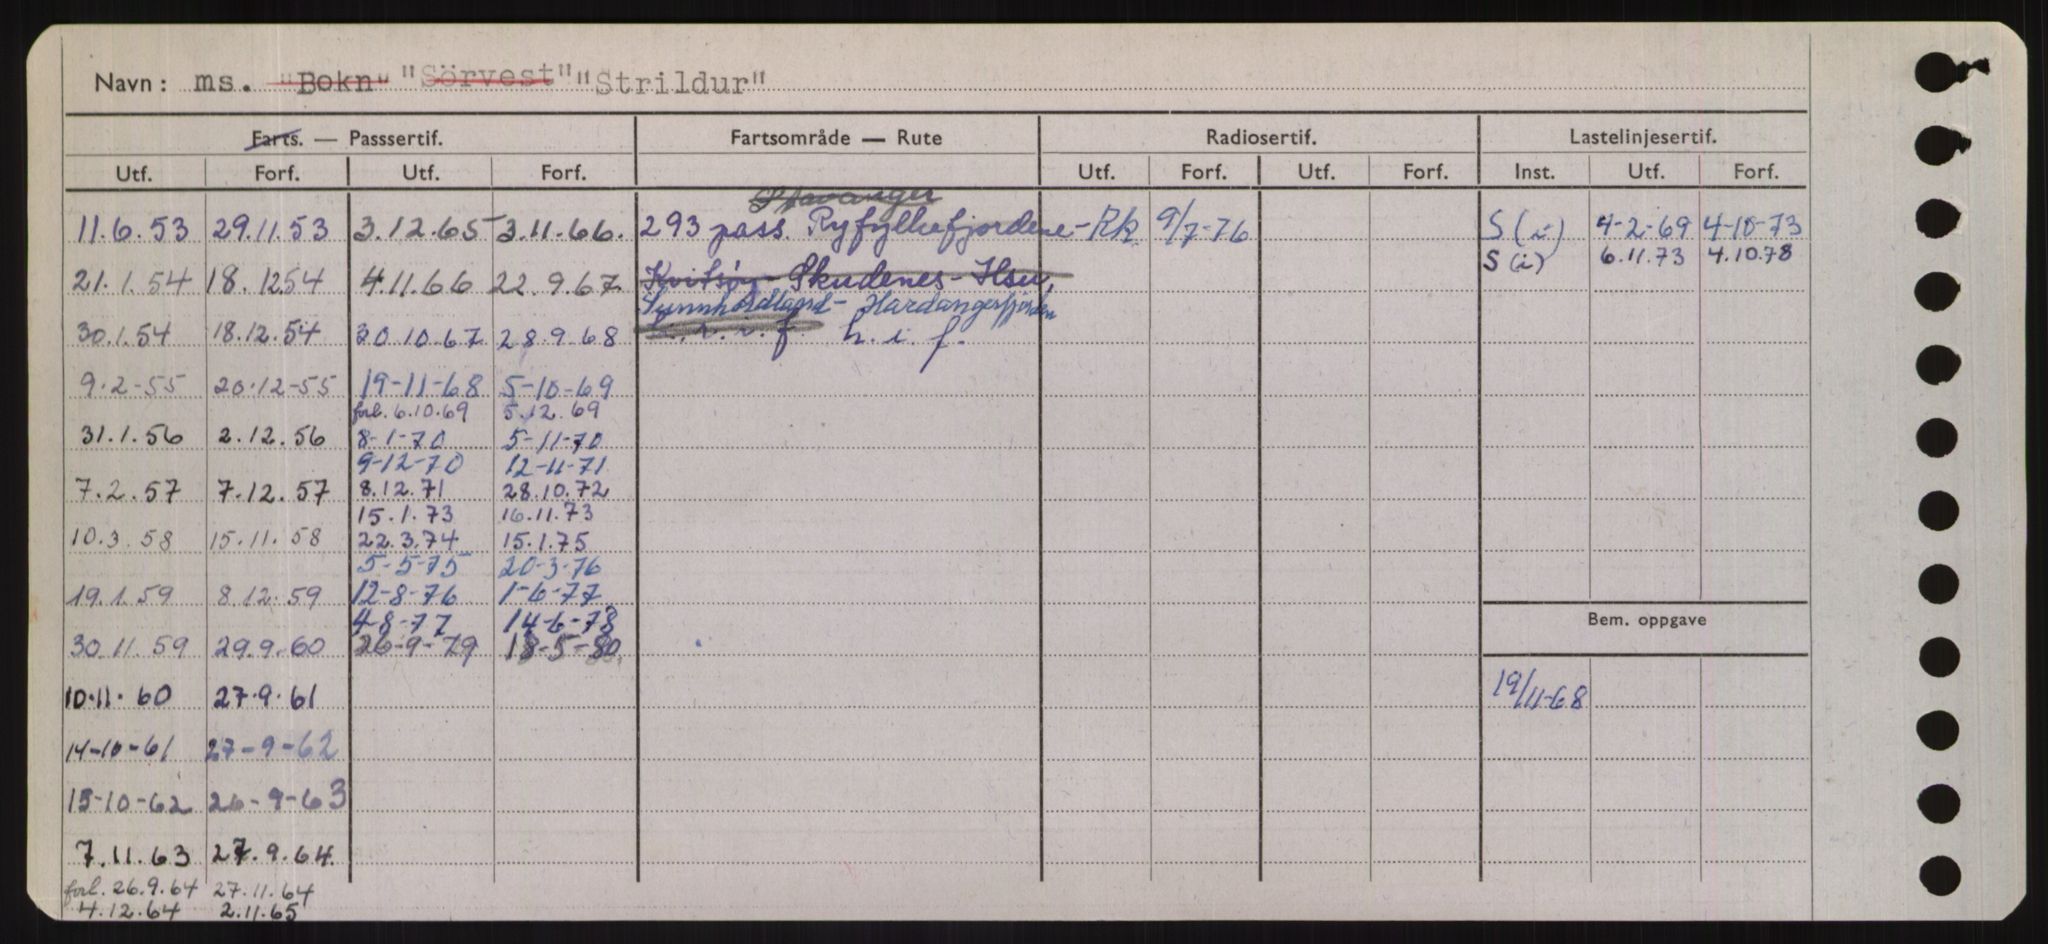 Navn: ms. "Bokn" "Sörvest" "Strildur"
Farts. — Passsertif. Fartsområde — Rute Radiosertif. Lastelinjesertif.
Utf. Forf. Utf. Forf. Utf. Forf. Utf. Forf. Inst. Utf. Forf.
Stavanger
11.6.53 29.11.53 3.12.65 3.11.66. 293 pass. Ryfylkefjordene- Rk 9/7-76 S (i) 4-2-69 4-10-73
S (i) 6.11.73 4.10.78
21.1.54 18.1254 4.11.66 22.9.67 Kvitsøy- Skudenes-
Sunnhordland- Hardangerfjorden
30.1.54 18.12.54 30.10.67 28.9.68 h.i.f.
9.2-55 20.12-55 19-11-68 5-10-69
forl. 6.10.69 5.12.69
31.1.56 2.12.56 8-1-70 5-11-70
9-12-70 12-11-71
7.2.57 7.12.57 8.12.71 28.10.72
15.1.73 16.11.73
10.3.58 15.11.58 22.3.74 15.1.75
5-5-75 20-3-76
19.1.59 8.12.59 12-8-76 1-6-77
4-8-77 14-6-78
Bem. oppgave
30.11.59 29.9.60 26-9-79 18-5-80
10.11.60 27.9.61 19/11-68
14-10-61 27-9-62
15-10-62 26-9-63
7.11.63 27.9.64
forl. 26.9.64 27.11.64
4.12.64 2.11.65